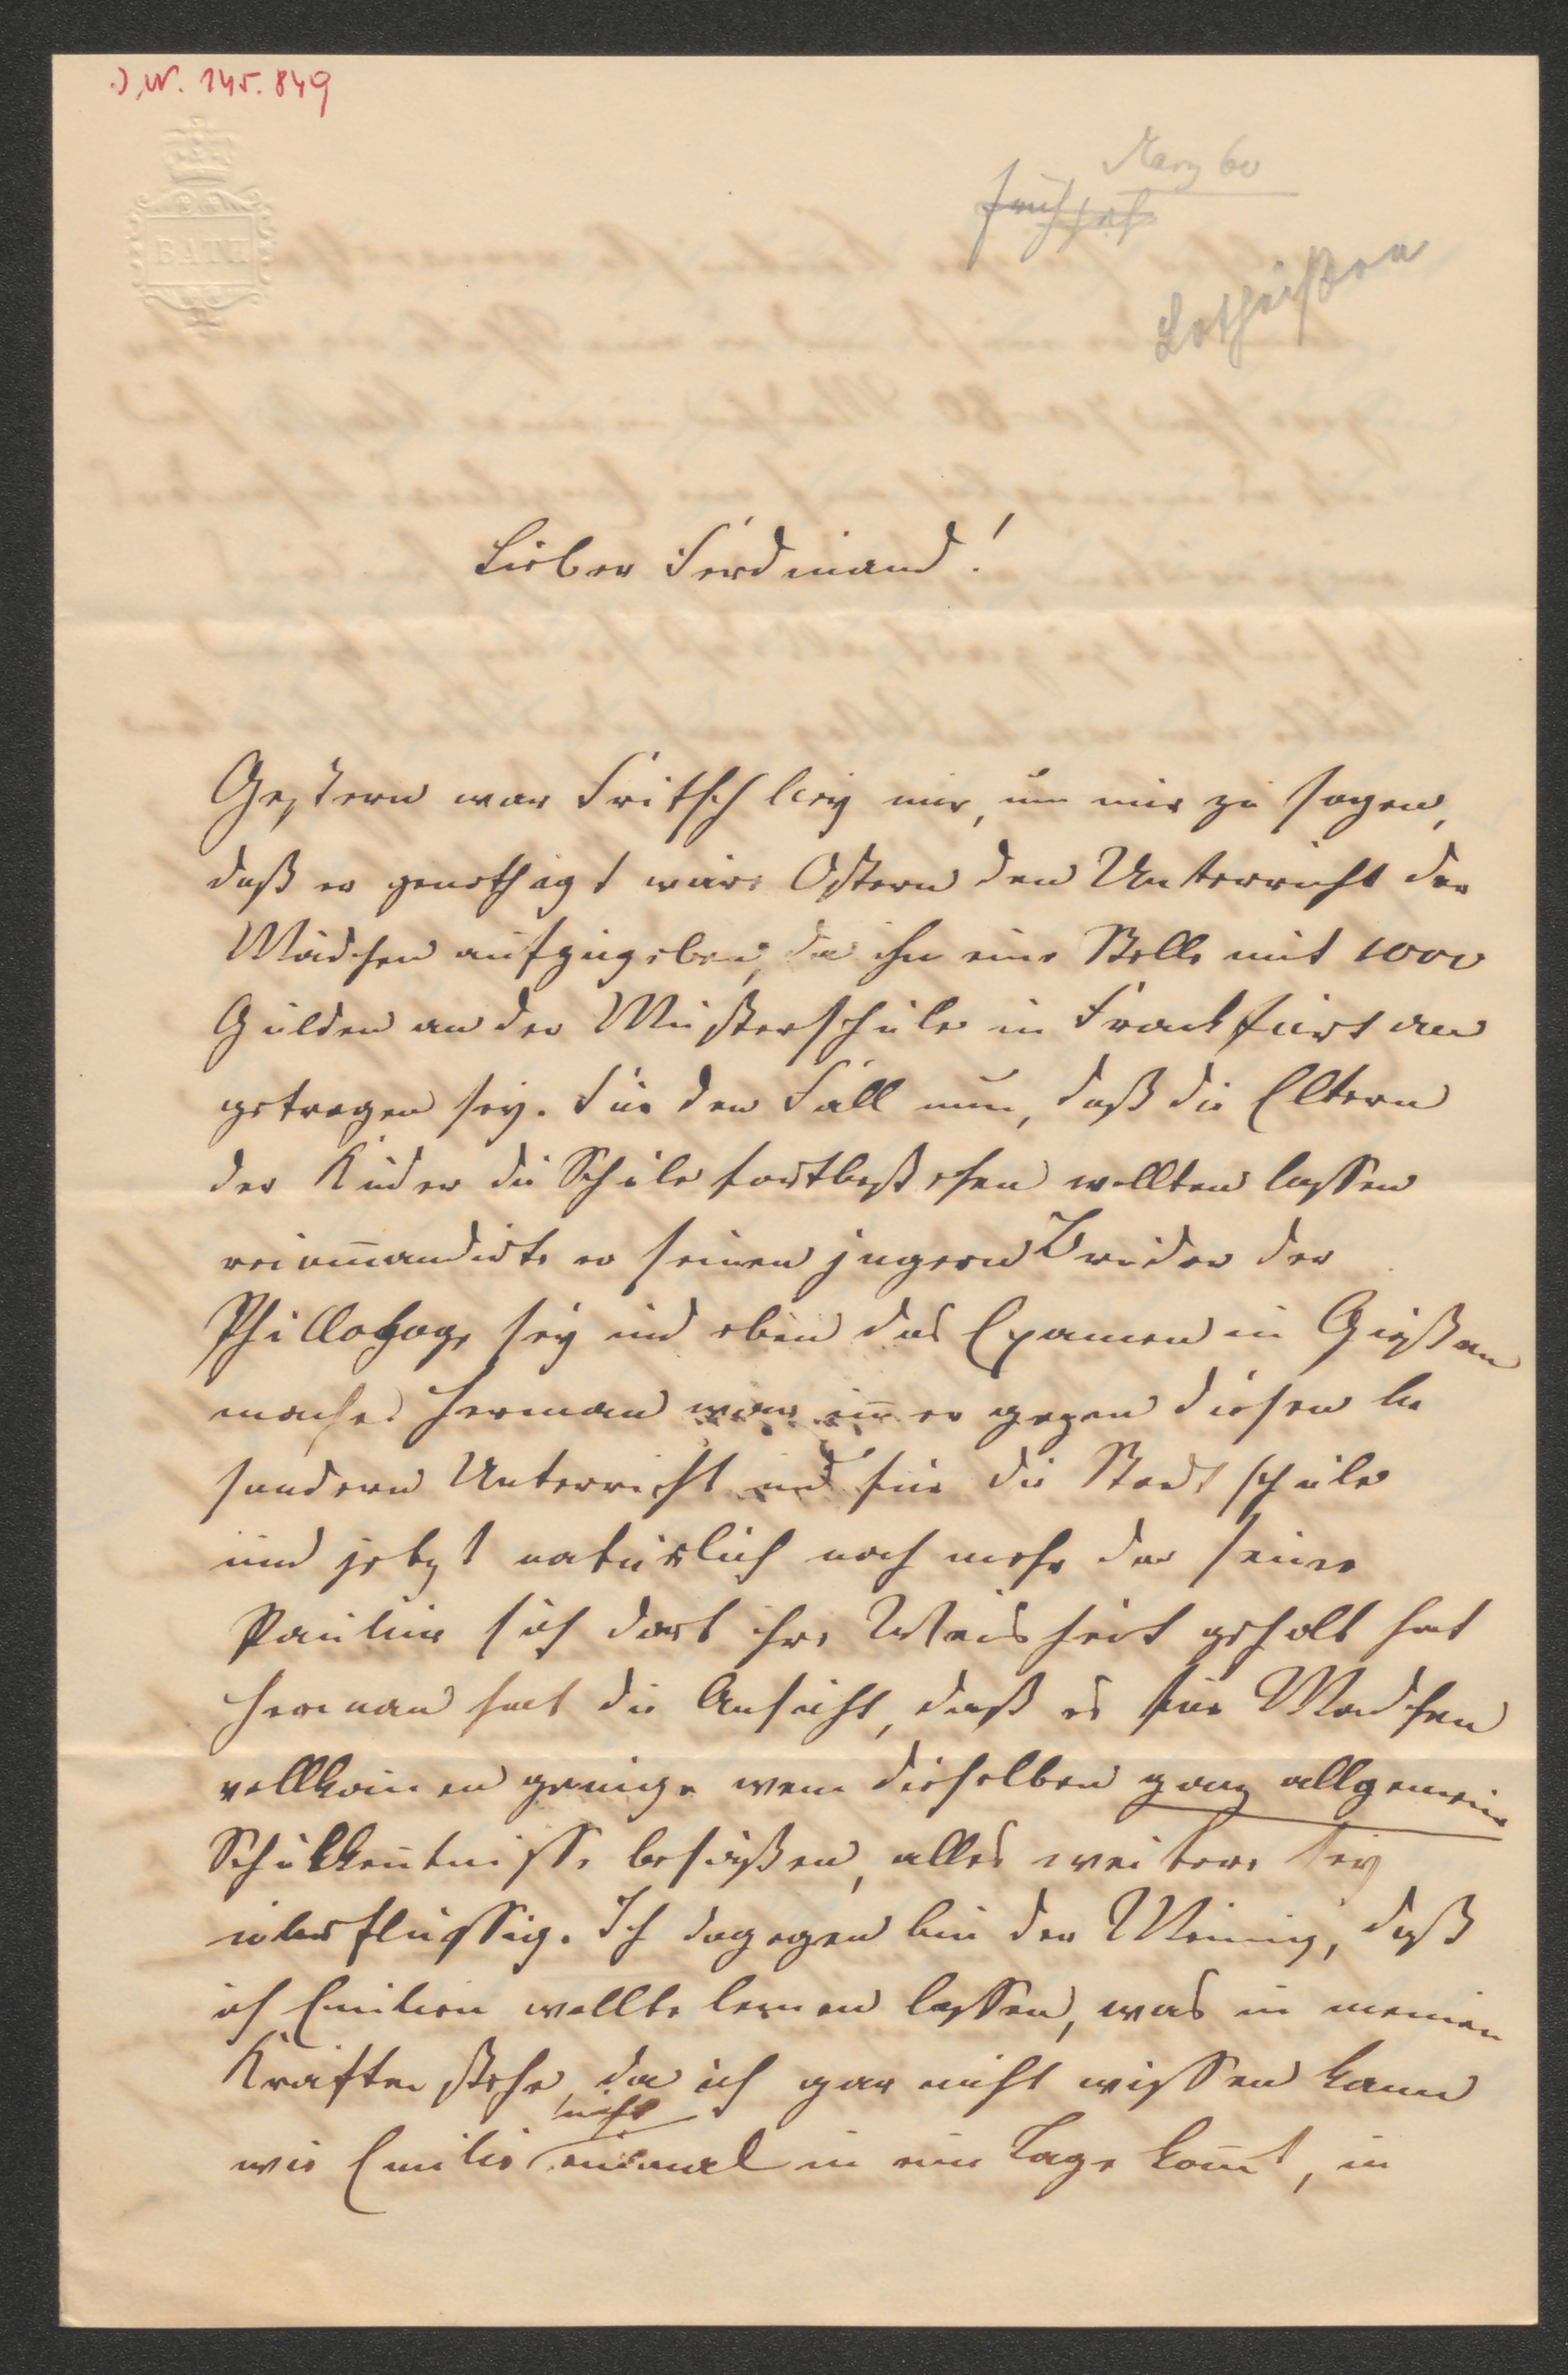 J.N. 145.849
BATH
Marz 60
Lotheißen
Lieber Ferdinand!
Gestern war Fritsch bey mir, um mir zu sagen,
daß er genothigt wäre Ostern den Unterricht der
Mädchen aufzugeben, da ihm eine Stelle mit 1000
Gulden an der Musterschule in Frankfurt an
getragen sey. Für den Fall nun, daß die Eltern
der Kinder die Schule fortbestehen wollten lassen
recommandirte er seinen jugern Bruder der
Phillologe sey und eben das Examen in Gießen
mache. Herman war immer gegen diesen be
sondern Unterricht und für die Stadtschule
und jetzt natürlich noch mehr da seine
Pauline sich dort ihre Weisheit geholt hat
Herman hat die Ansicht, daß es für Madchen
vollkommen genüge wenn dieselben ganz allgemeine
Schulkentnisse besäßen, alles weitere sey
überflüssig. Ich dagegen bin der Meinung, daß
ich Emilien wollte lernen lassen, was in meinen
Kräften stehe, da ich gar nicht wissen kann
nicht
wie Emilie einmal in ein Lage komt, in